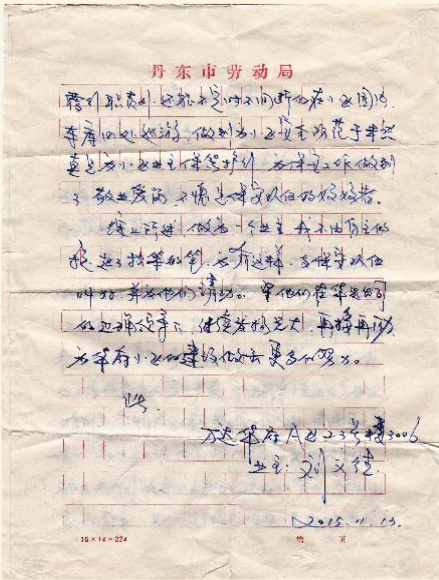 丹东市劳动局
职责外，还能不定时不间断的在小区周边
车库四处巡游，做到为小区安全防范于未然
真是为小区业主保驾护航，为保安工作做到
了敬业爱岗，不愧是保安队伍的
综上所述，做为一个业主，我不由自主的
提起了拙笨的笔，为有这样，支保安队伍
叫好，并为他们请功。望他们在华
的正确领导下，继续发扬光大，再接再励
为华府小区的建设做出更多的努力。
此
华府A区23号楼3006
业主：刘文
2015.11.13.
16×14=224
第 页